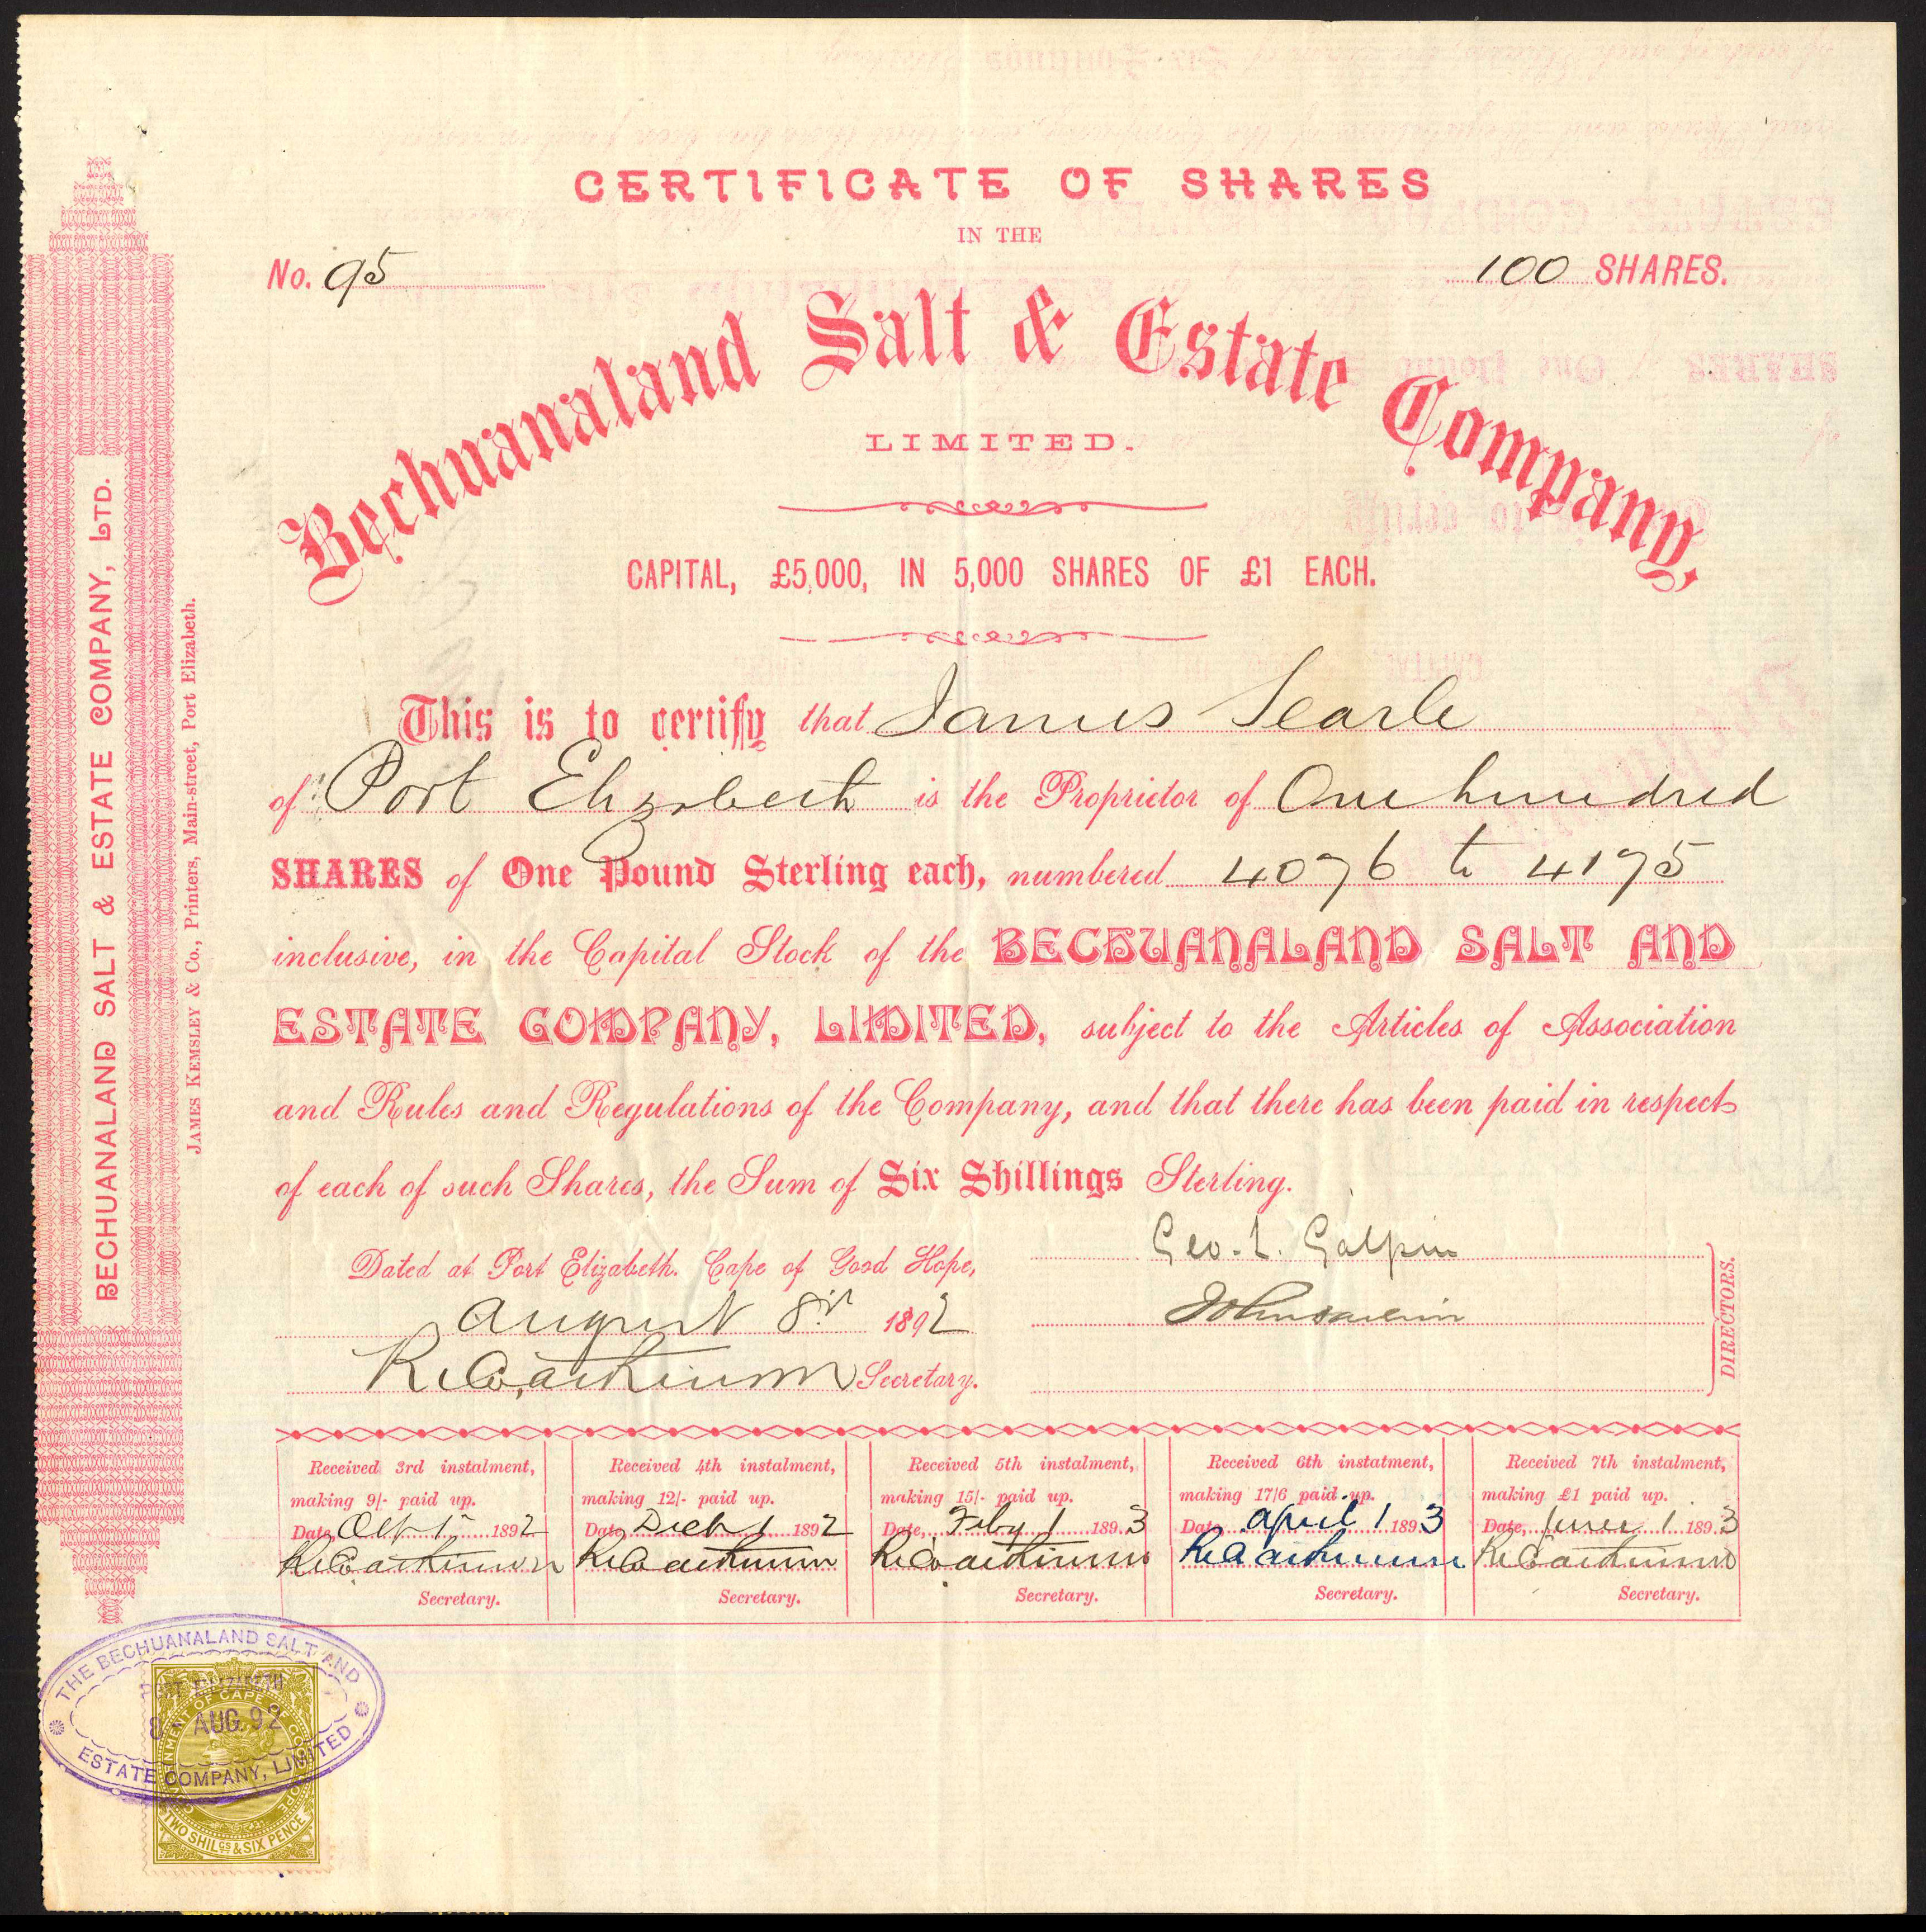 CERTIFICATE OF SHARES
IN THE
No. 95
100 SHARES.
Bechuanaland Salt & Estate Company,
LIMITED.
CAPITAL, £5,000, IN 5,000 SHARES OF £1 EACH.
This is to certify that James Searle
of Port Elizabeth is the Proprietor of One hundred
SHARES of One Pound Sterling each, numbered 4076 to 4175
inclusive, in the Capital Stock of the BECHUANALAND SALT AND
ESTATE COMPANY, LIMITED, subject to the Articles of Association
and Rules and Regulations of the Company, and that there has been paid in respect
of each of such Shares, the Sum of Six Shillings Sterling.
Dated at Port Elizabeth. Cape of Good Hope,
August 8th 1892
Secretary.
Geo. L. Galpin
DIRECTORS.
Received 3rd instalment,
making 9/- paid up.
Date, Oct 1st 1892
Secretary.
Received 4th instalment,
making 12/- paid up.
Date, Decb 1 1892
Secretary.
Received 5th instalment,
making 15/- paid up.
Date, Feby 1 1893
Secretary.
Received 6th instatment,
making 17/6 paid up.
Date, April 1 1893
Secretary.
Received 7th instalment,
making £1 paid up.
Date, June 1 1893
Secretary.
BECHUANALAND SALT & ESTATE COMPANY, LTD.
JAMES KEMSLEY & Co., Printers, Main-street, Port Elizabeth.
THE BECHUANALAND SALT AND
PORT ELIZABETH
8 - AUG. 92
ESTATE COMPANY, LIMITED
GOVERNMENT OF CAPE OF GOOD HOPE
TWO SHILGS & SIX PENCE